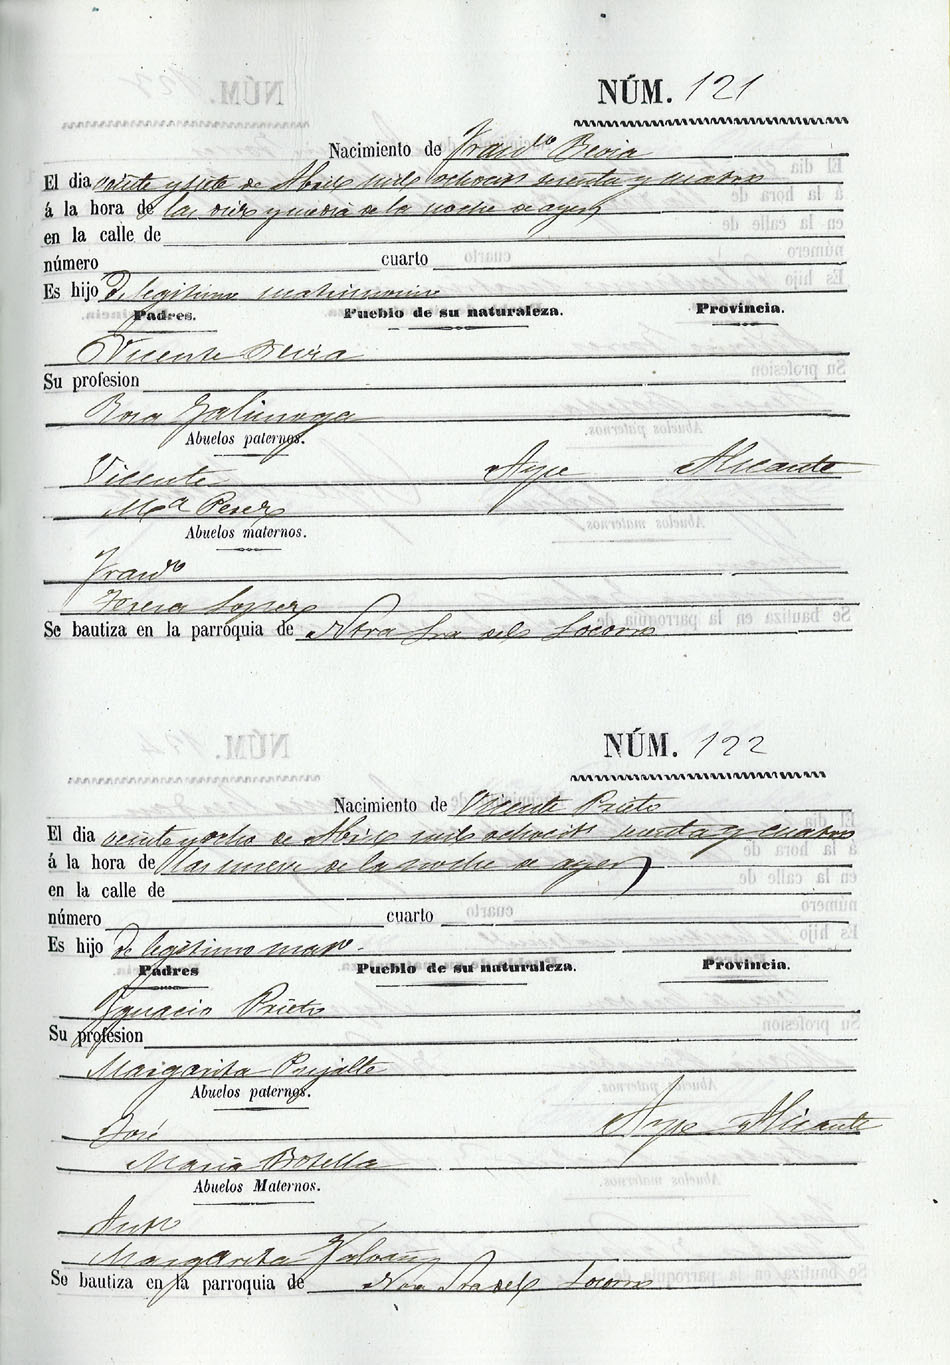 NÚM. 121
Nacimiento de Franco Bevia
El dia veinte y siete de Abril mil ochocits sesenta y cuatro
á la hora de las diez y media de la noche de ayer
en la calle de
número cuarto
Es hijo de legitimo matrimonio
Padres. Pueblo de su naturaleza. Provincia.
Vicente Bevia
Su profesion
Rosa Galinsoga
Abuelos paternos.
Vicente Aspe Alicante
Ma Perez
Abuelos maternos.
Franco
Teresa Lopez
Se bautiza en la parroquia de Ntra Sra del Socorro
NÚM. 122
Nacimiento de Vicente Prieto
El dia veinte y ocho de Abril mil ochocits sesenta y cuatro
á la hora de las nueve de la noche de ayer
en la calle de
número cuarto
Es hijo de legitimo mato.
Padres Pueblo de su naturaleza. Provincia.
Ignacio Prieto
Su profesion
Margarita Pujalte
Abuelos paternos.
José Aspe Alicante
Maria Botella
Abuelos Maternos.
Anto
Margarita
Se bautiza en la parroquia de Ntra Sra del Socorro